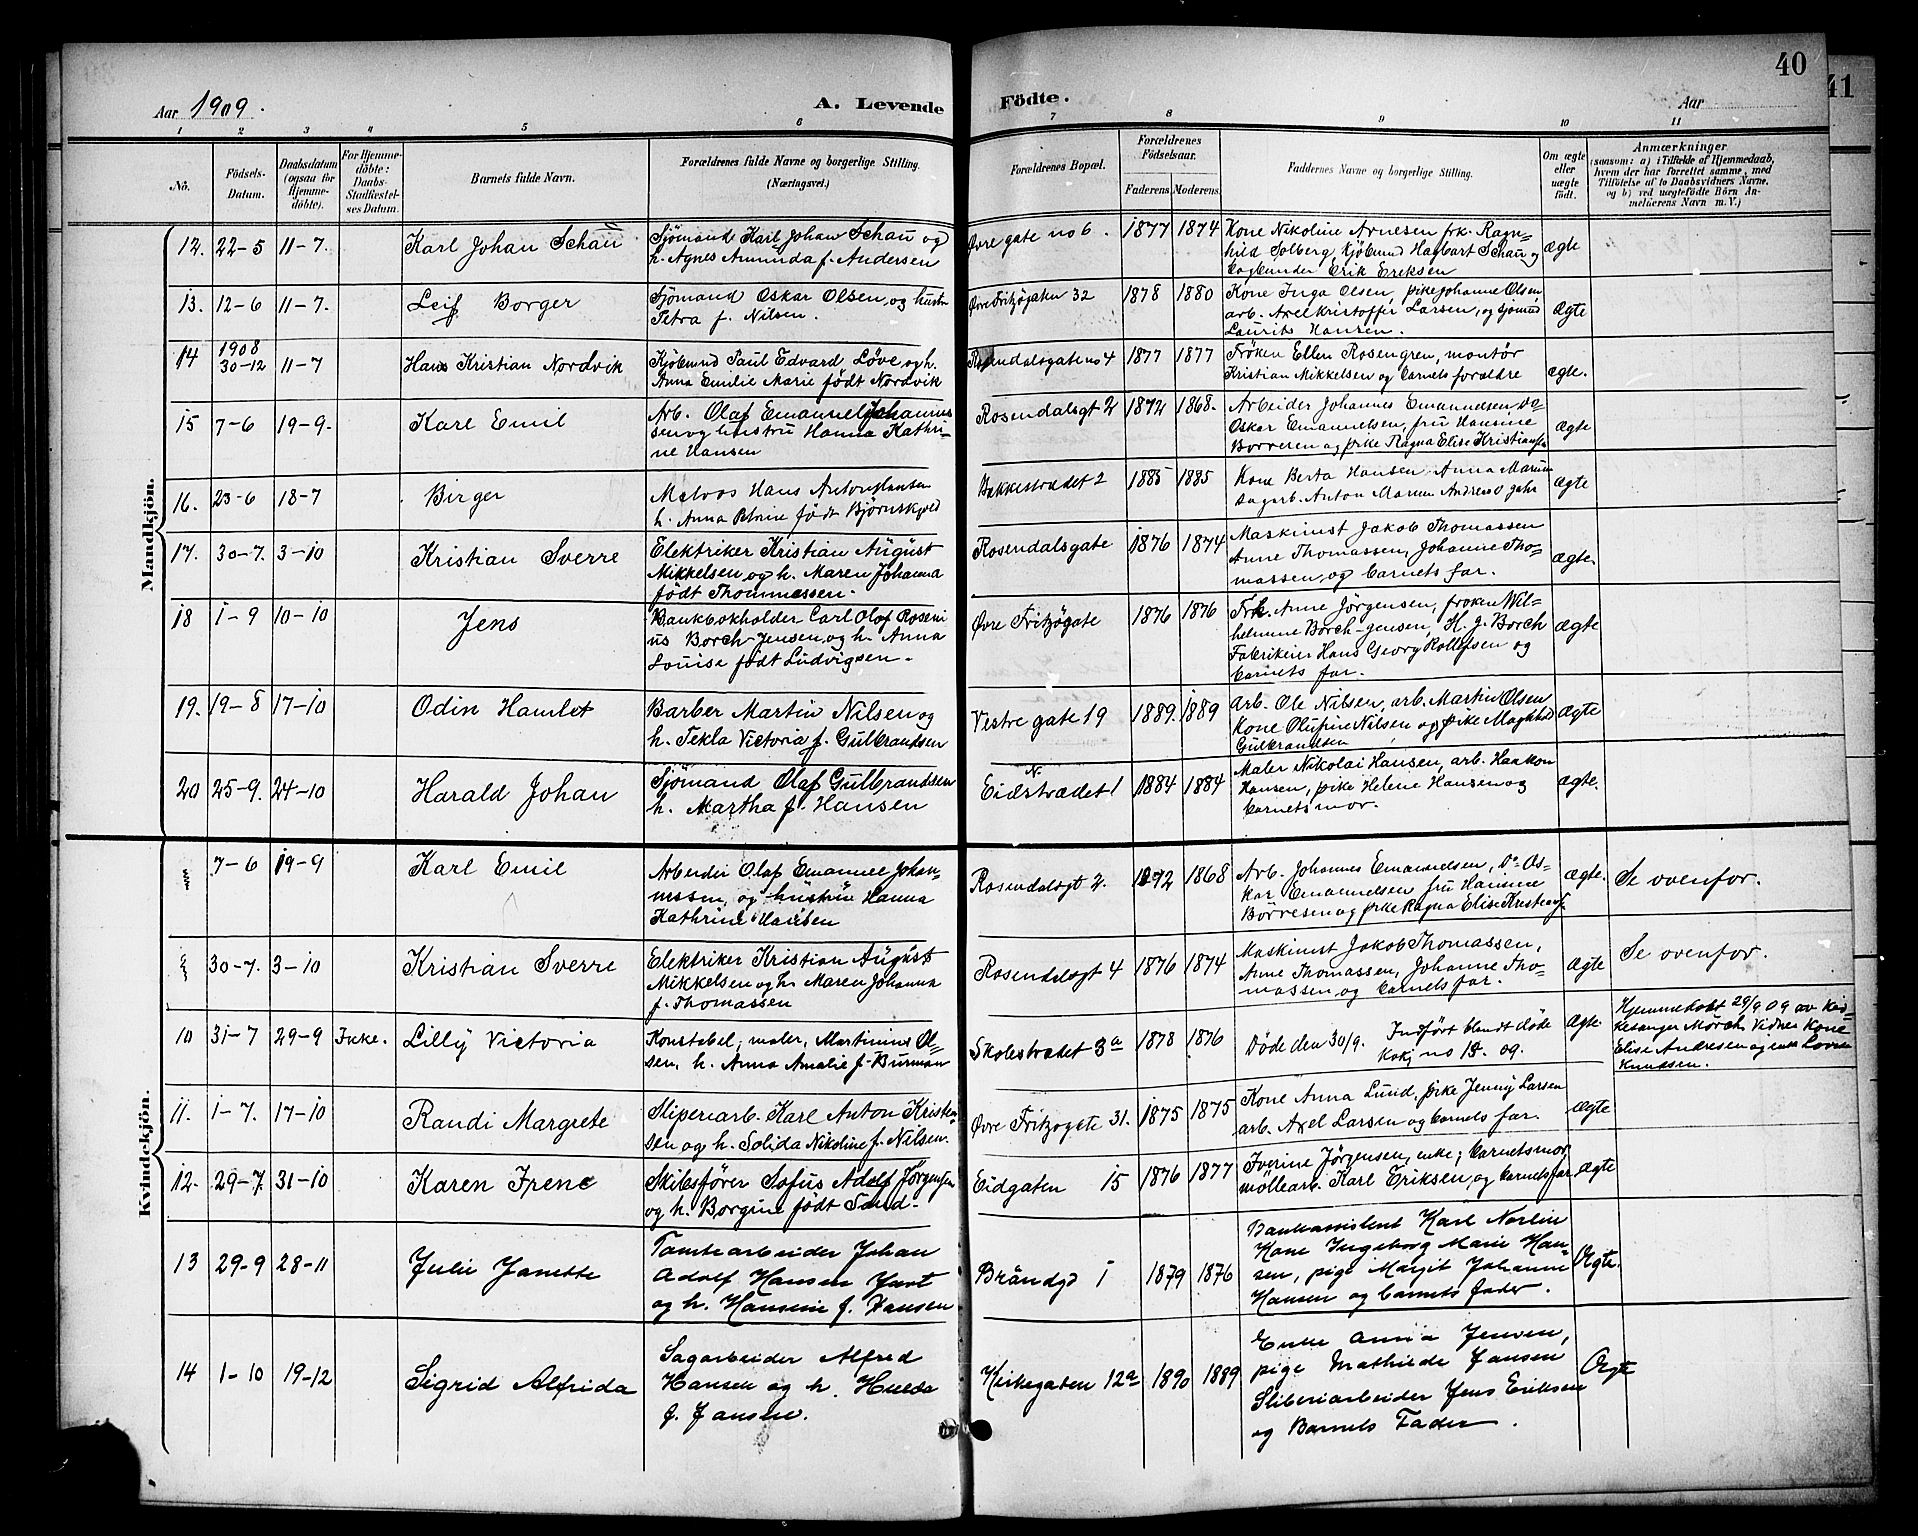 40
41
Aar 1909.
A. Levende Födte.
Aar
1 2 3 4 5 6 7 8 9 10 11
No.
Födsels-Datum.
Daabsdatum (ogsaa for Hjemmedöbte).
For Hjemmedöbte: Daabs-Stadfæstelses Datum.
Barnets fulde Navn.
Forældrenes fulde Navne og borgerlige Stilling. (Næringsvei.)
Forældrenes Bopæl.
Forældrenes Födselsaar.
Faderens. Moderens.
Faddernes Navne og borgerlige Stilling.
Om ægte eller uægte födt.
Anmærkninger
(saasom: a) i Tilfælde af Hjemmedaab, hvem der har forrettet samme, med Tilföielse af to Daabsvidners Navne, og b) ved uægtefödte Börn Anmelderens Navn m. V.)
Mandkjön.
12. 22-5 11-7. Karl Johan Schau
Sjömand Karl Johan Schau og
h. Agnes Amunda f. Andersen
Øvre gate no 6. 1877 1874
Kone Nikoline Arnesen frk. Ragn-
hild Solberg, kjöbmnd Hagbart Schau og
bagbinder Erik Eriksen
ægte
13. 12-6 11-7. Leif Borger
Sjömand Oskar Olsen, og hustru
Petra f. Nilsen.
Øvre Fritzögaten 32 1878 1880
Kone Inga Olsen, pike Johanne Olsen,
arb. Axel Kristoffer Larsen, og sjömnd
Laurits Hansen.
ægte
14 1908
30-12 11-7 Hans Kristian Nordvik
Kjöbmnd Paul Edvard Löve og h.
Anna Emilie Marie födt Nordvik
Rosendalsgate no 4 1877 1877
Fröken Ellen Rosengren, montör
Kristian Mikkelsen og barnets forældre
ægte.
15 7-6 19-9. Karl Emil
Arb. Olaf Emanuel Johannes
sen og hustru Hanna Kathri-
ne Hansen
Rosendalsgt 2 1872 1868.
Arbeider Johannes Emanuelsen, Do
Oskar Emanuelsen, fru Hansine
Börresen og pike Ragna Elise Kristiansen
ægte
16. 23-6 18-7 Birger
Matros Hans Anton Hansen
h. Anna Petrine födt Björnskjold
Bakkestrædet 2 1885 1885
Kone Berta Hansen Anna
sagarb. Anton Andreas
ægte
17. 30-7. 3-10 Kristian Sverre
Elektriker Kristian August
Mikkelsen og h. Maren Johanna
födt Thommessen.
Rosendalsgate 1876 1874
Maskinist Jakob Thomassen
Anne Thomassen, Johanne Tho-
massen, og barnets far.
ægte.
18 1-9 10-10 Jens
Bankbokholder Carl Olaf Roseni
us Borch-Jensen, og h. Anna
Louise födt Ludvigsen.
Øvre Fritzögate 1876 1876
Frk. Anne Jörgensen, froken Wil-
helmine Borch-Jensen, H. J. Borch
Fabrikeier Hans Georg Rollefsen og
barnets far.
ægte
19. 19-8 17-10 Odin Hamlet
Barber Martin Nilsen og
h. Tekla Victoria f. Gulbrandsen
Vestre gate 19 1889. 1889
arb. Ole Nilsen, arb. Martin Olsen
Kone Olufine Nilsen og pike Maghild
Gulbrandsen
ægte
20 25-9. 24-10 Harald Johan
Sjömand Olaf Gulbrandsen
h. Martha f. Hansen
N.
Eidstrædet 1 1884 1884
Maler Nikolai Hansen, arb. Haakon
Hansen, pike Helene Hansen og
barnets mor.
ægte.
Kvindekjön.
7-6 19-9 Karl Emil
Arbeider Olaf Emanuel Johan-
nssen, og hustru Hanna
Kathrine Hansen
Rosendalsgt 2. 1872 1868
Arb. Johannes Emanuelsen, Do Os-
kar Emanuelsen fru Hansine
Börresen og pike Ragna Elise Kristians.
ægte. Se ovenfor.
30-7. 3-10 Kristian Sverre
Elektriker Kristian August
Mikkelsen og h. Maren Johanna
f. Thomassen
Rosendalsgt 4 1876 1874
Maskinist Jakob Thomassen,
Anne Thomassen, Johanne Tho-
massen, og barnets far.
ægte Se ovenfor.
10 31-7 29-9 Ikke. Lilly Victoria
Konstabel, maler, Martinius Ol-
sen, h. Anna Amalie f. Burman
Skolestrædet 3a 1878 1876
Döde den 30/9. Indfört blandt döde
kokj no 18. 09.
ægte.
Hjemmedöbt 29/9 09 av kir-
kesanger Mörch. Vidner Kone
Elise Andresen og enke
Knudsen.
11. 1-7. 17-10 Randi Margrete
Sliperiarb. Karl Anton Kristen
sen og h. Solida Nikoline f. Nilsen.
Øvre Fritzogate 31. 1875 1875
Kone Anna Lund, pike Jenny Larsen
arb. Axel Larsen og barnets far.
ægte
12. 29-7. 31-10 Karen Irene
Skibsförer Sofus Adolf Jörgensen
og h. Borgine födt Sand.
Eidgaten 15 1876 1877
Iverine Jörgensen, enke; barnets mor,
möllearb. Karl Eriksen, og barnets far
ægte
13 29-9 28-11 Julie Janette
Tomtearbeider Johan
Adolf Hansen
og h. Hansine f. Hansen
Brändgd 1 1879 1876
Bankassistent Karl Norlin
Kone Ingeborg Marie Han-
sen, pige Margit Johanne
Hansen og barnets fader.
Ægte.
14 1-10 19-12 Sigrid Alfrida
Sagarbeider Alfred
Hansen og h. Hulda
f. Jansen.
Kirkegaten 12a 1890 1889
Enke Anna Jensen,
pige Mathilde Jansen
Sliberiarbeider Jens Eriksen
og Barnets Fader.
Ægte